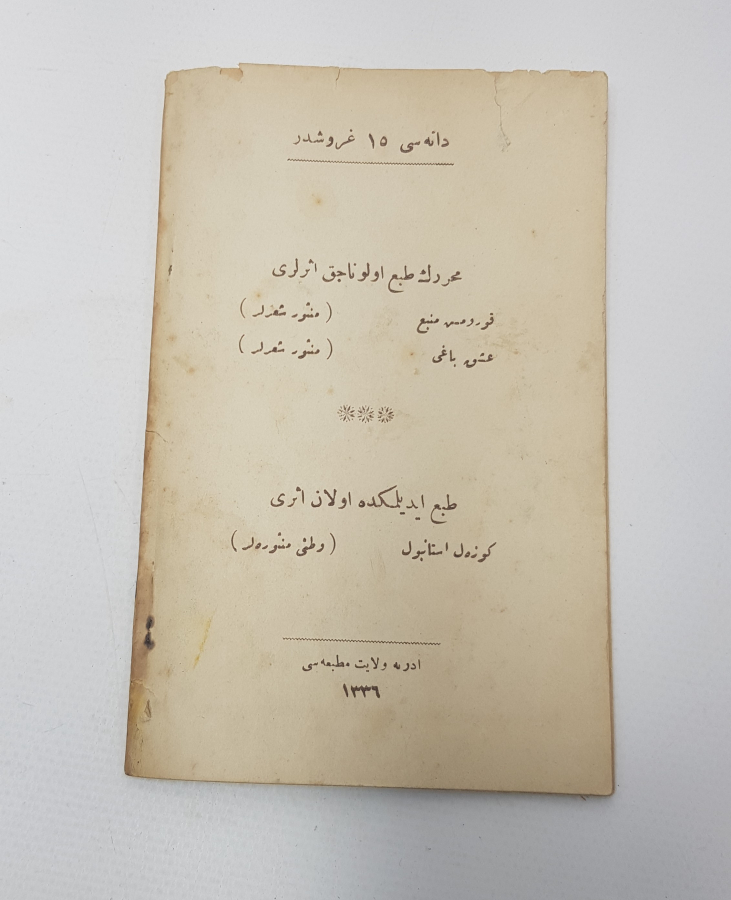 دانه‌سی ١٥ غروشدر
محررك طبع اولوناجق اثرلری
قورومش منبع (منثور شعرلر)
عشق باغی (منثور شعرلر)
طبع ایدیلمکده اولان اثری
کوزه‌ل استانبول (وطنی منثوره‌لر)
ادرنه ولایت مطبعه‌سی
١٣٣٦